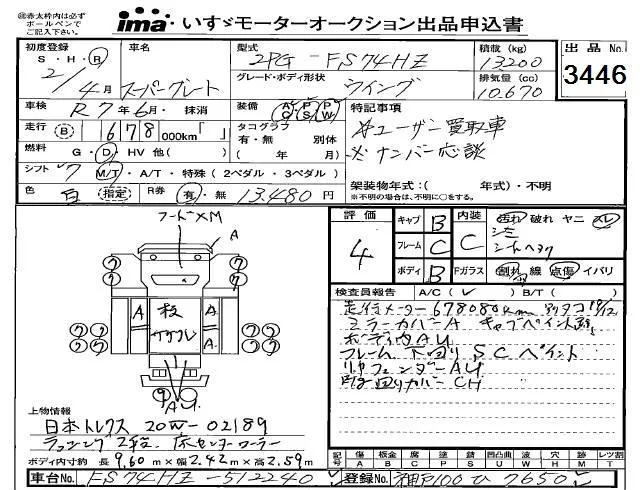 ㊟赤太枠内は必ず
ボールペンで
ご記入下さい。
ima いすゞモーターオークション出品申込書
初度登録 車名 型式 積載 (kg) 出品No.
S・H・R 2/4月 スーパーグレート 2PG-FS74HZ 13200 3446
グレード・ボディ形状 ウイング 排気量 (cc) 10.670
車検 R7年6月・抹消 装備 A/C P/S P/W 特記事項
走行 B 678 000km「 」 タコグラフ 有・無 別体 ※ユーザー買取車
燃料 G・D・HV 他( ) ( 年 月) ※ナンバー応談
シフト 7 M/T・A/T・特殊 (2ペダル・3ペダル)
架装物年式:( 年式)・不明
色 白 (指定) R券 有・無 13.480円 ※不明の場合は、不明に○をする。
フードXM
A
評価 4
キャブ B 内装 C 汚れ 破れ ヤニ スレ
シミ
フレーム C シートヘタリ
ボディ B Fガラス 割れ 線 点傷 イバリ
A A
板
ササクレ
AU
検査員報告 A/C(レ) B/T( )
走行メーター 678080km
ミラーカバーA キャブペイント跡
ボディ内AU
フレーム 下回り SC ペイント
リヤフェンダーAU
CH
上物情報
日本トレクス 20W-02189
ラッシング2段 床センターローラー
ボディ内寸 約 長9.60m×幅2.42m×高2.59m
記号 傷A 板金B 腐C 塗P 錆S 凹凸U 波W 穴H 跡M ×× レツ割T
車台No. FS74HZ-512240 登録No. 神戸100ひ7650